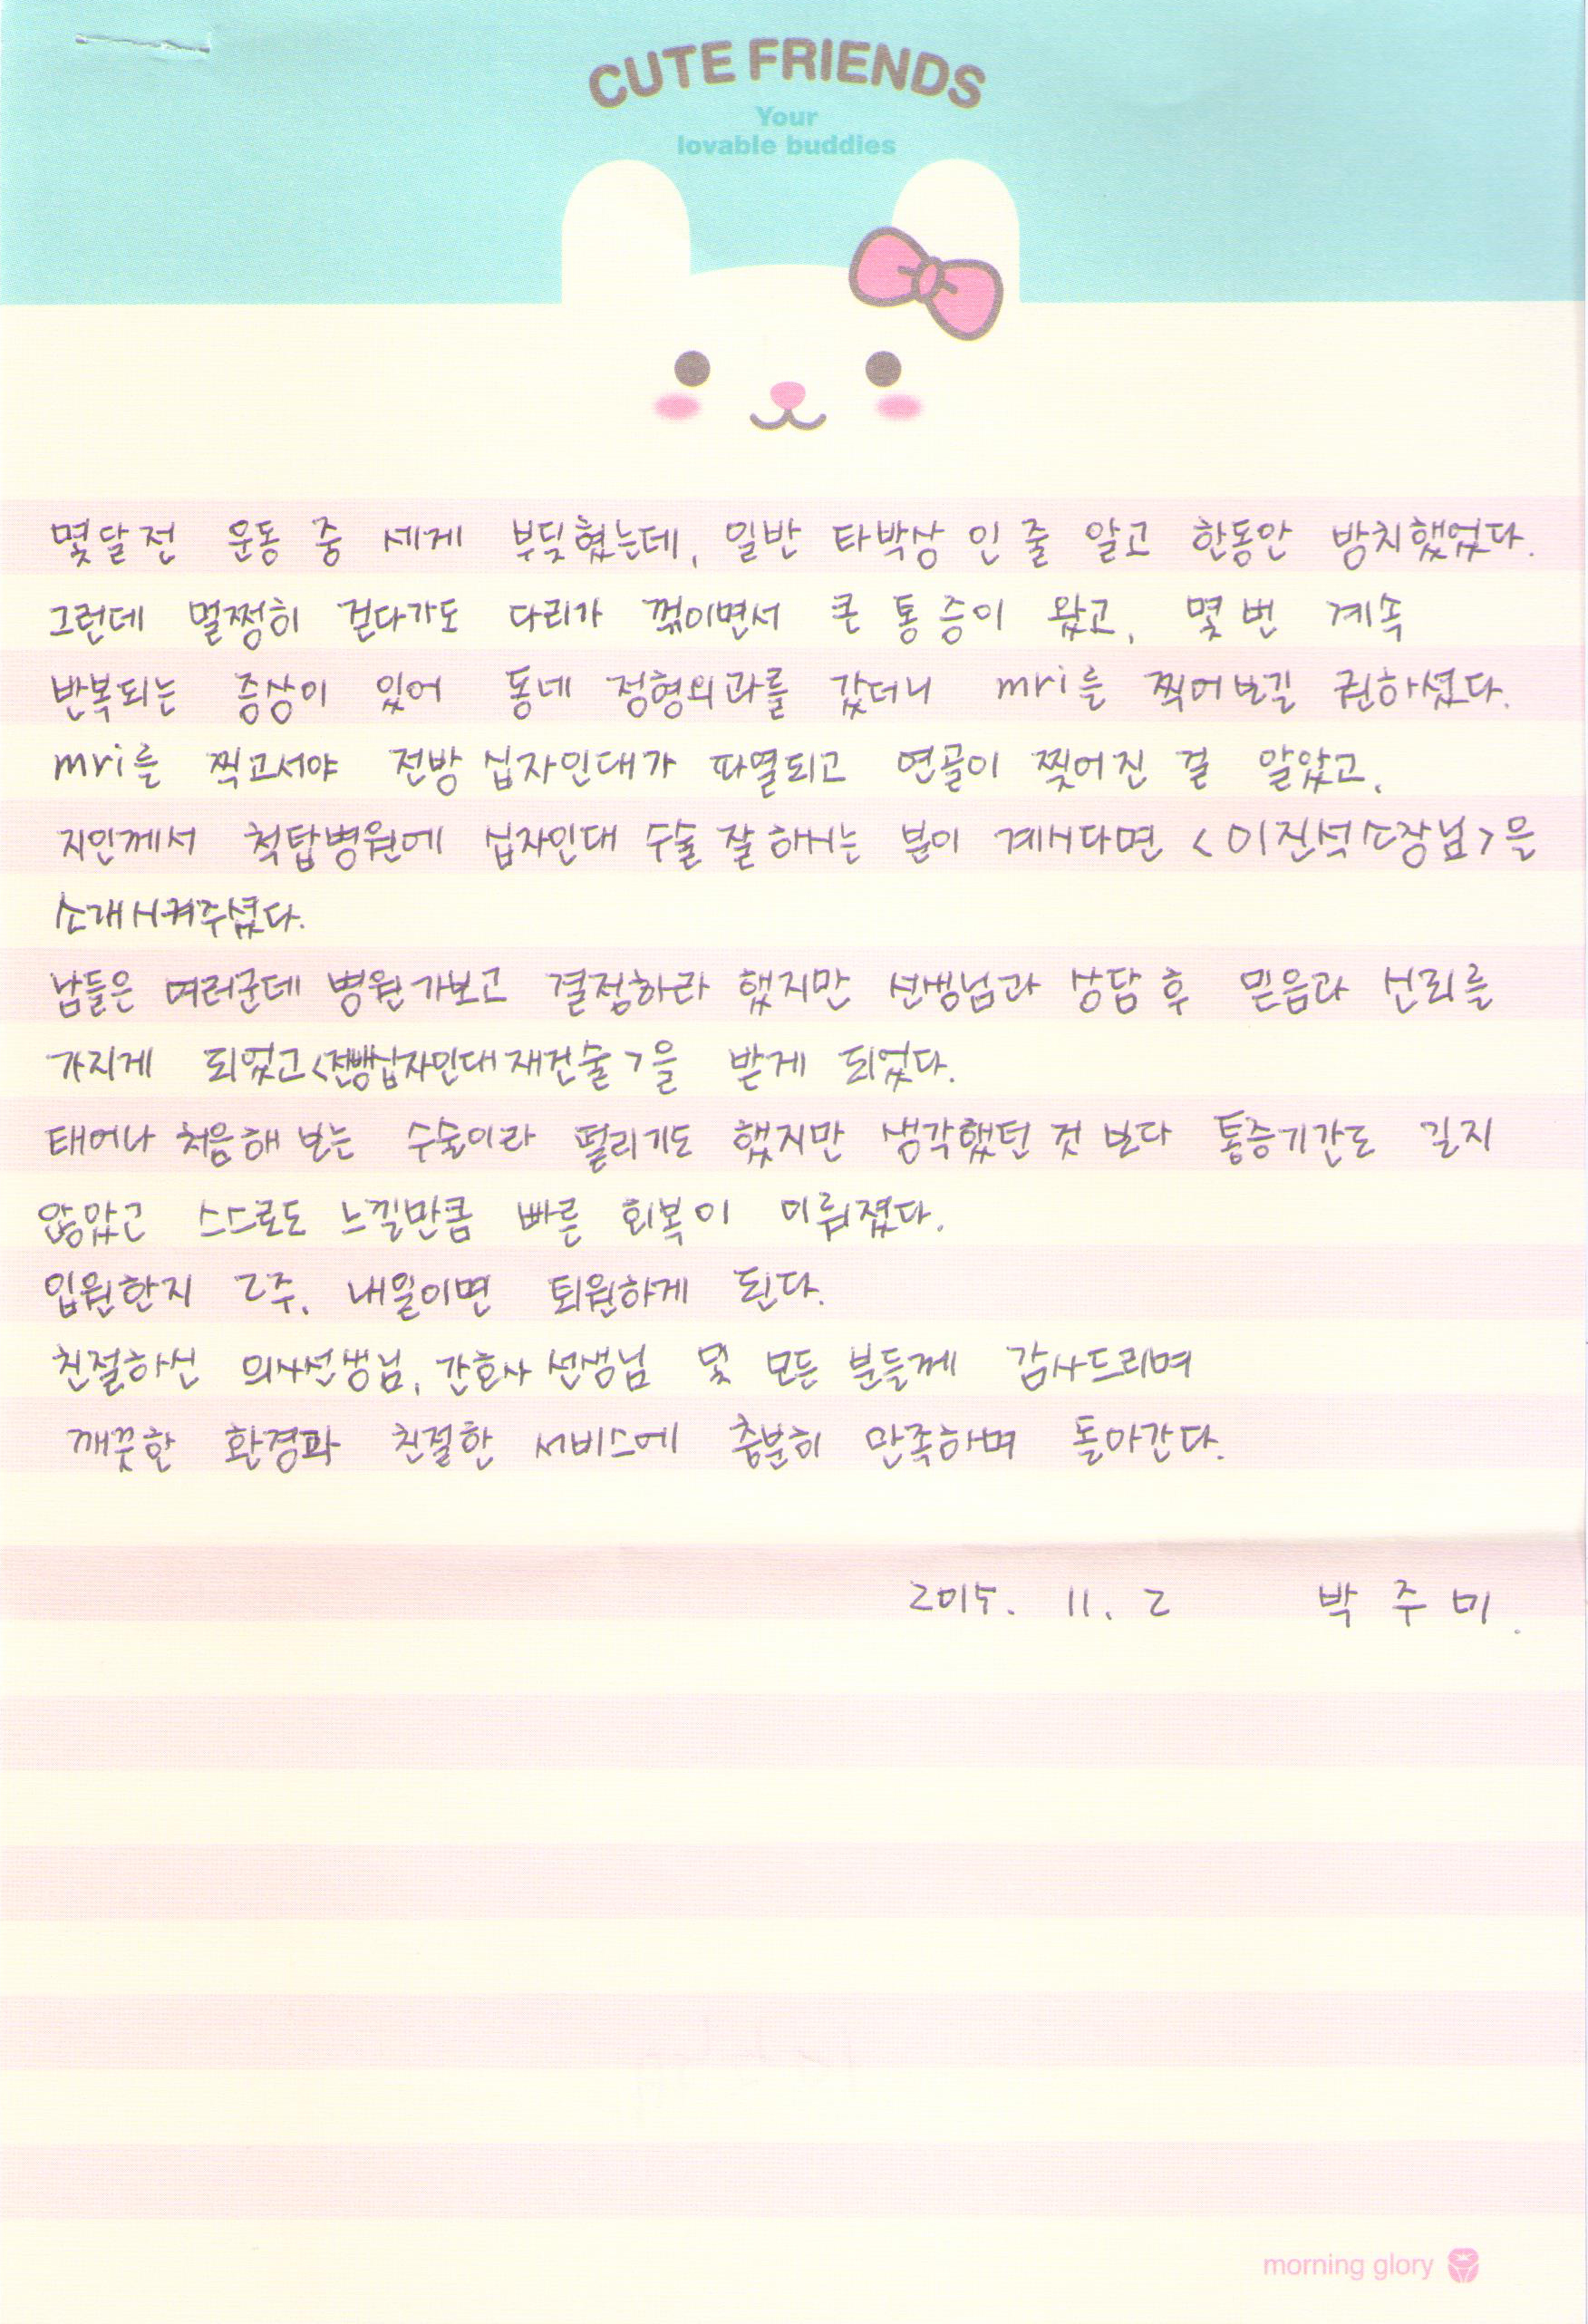 CUTE FRIENDS
Your
lovable buddies
몇달전 운동 중 세게 부딪혔는데, 일반 타박상 인 줄 알고 한동안 방치했었다.
그런데 멀쩡히 걷다가도 다리가 꺾이면서 큰 통증이 왔고, 몇 번 계속
반복되는 증상이 있어 동네 정형외과를 갔더니 mri를 찍어보길 권하셨다.
mri를 찍고서야 전방 십자인대가 파열되고 연골이 찢어진 걸 알았고,
지인께서 척탑병원에 십자인대 수술 잘 하시는 분이 계시다면 <이진석소장님>을
소개시켜주셨다.
남들은 여러군데 병원가보고 결정하라 했지만 선생님과 상담 후 믿음과 신뢰를
가지게 되었고<전방십자인대재건술>을 받게 되었다.
태어나 처음해 보는 수술이라 떨리기도 했지만 생각했던 것 보다 통증기간도 길지
않았고 스스로도 느낄만큼 빠른 회복이 이뤄졌다.
입원한지 2주, 내일이면 퇴원하게 된다.
친절하신 의사선생님, 간호사 선생님 및 모든 분들께 감사드리며
깨끗한 환경과 친절한 서비스에 충분히 만족하며 돌아간다.
2015. 11. 2 박 주 미.
morning glory